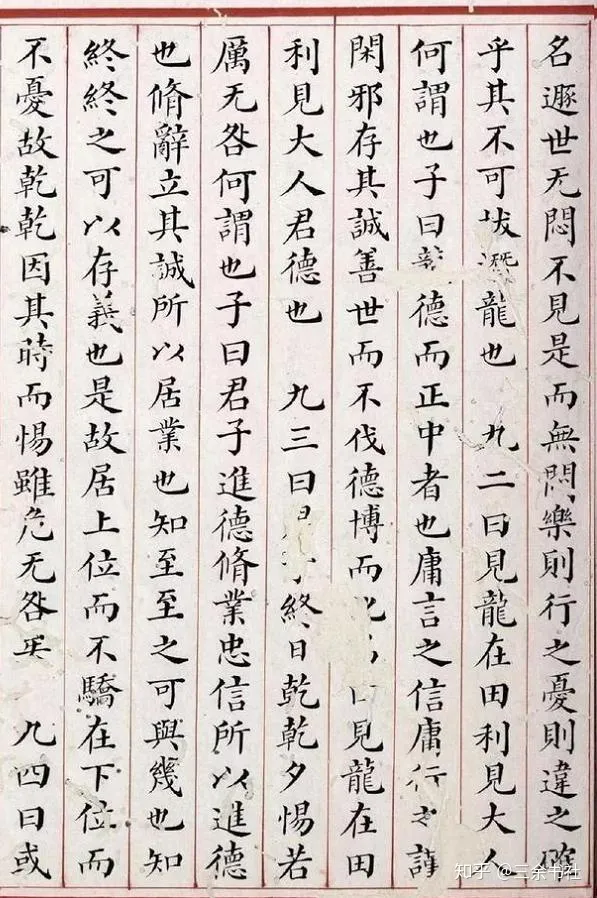 名遯世无悶不見是而無悶樂則行之憂則違之確
乎其不可拔潛龍也 九二曰見龍在田利見大人
何謂也子曰龍德而正中者也庸言之信庸行之謹
閑邪存其誠善世而不伐德博而見龍在田
利見大人君德也 九三曰終日乾乾夕惕若
厲无咎何謂也子曰君子進德脩業忠信所以進德
也脩辭立其誠所以居業也知至至之可與幾也知
終終之可以存義也是故居上位而不驕在下位而
不憂故乾乾因其時而惕雖危无咎矣 九四曰或
知乎 @三余书社